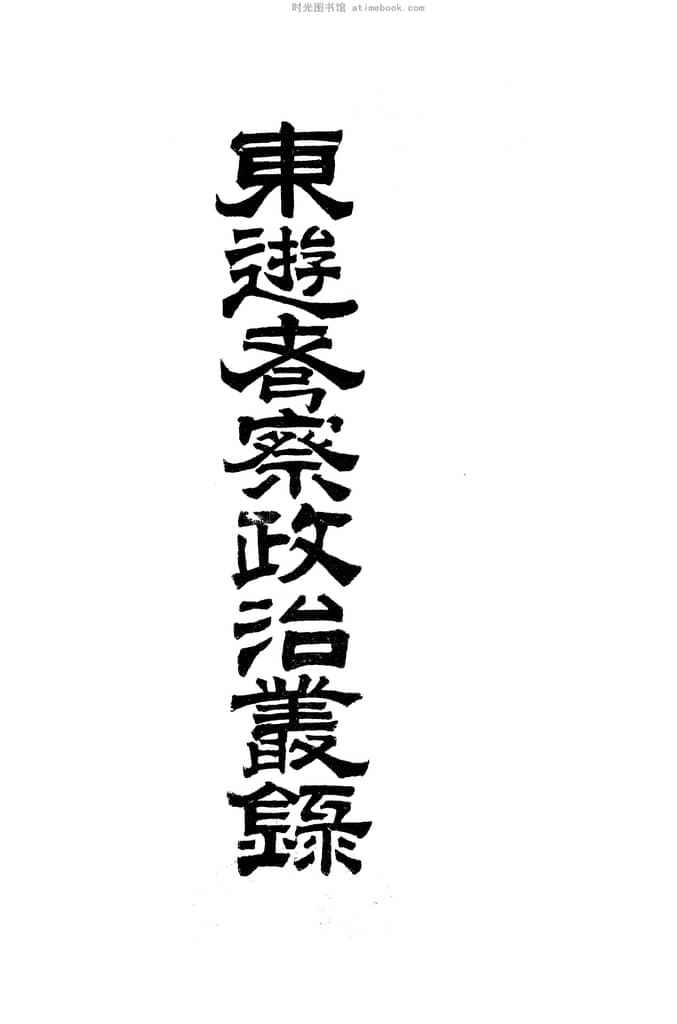 时光图书馆 atimebook.com
東遊考察政治叢錄